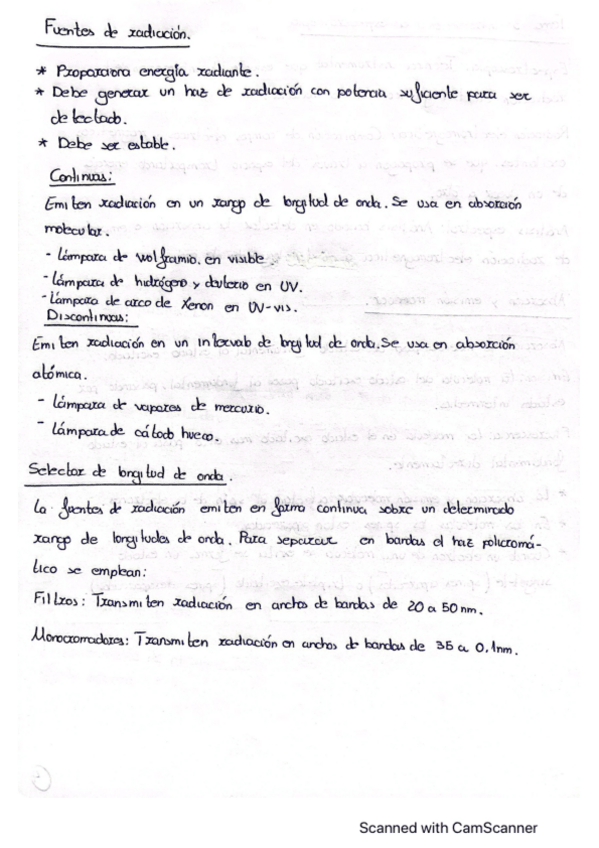 Fuentes de radiación.
* Proporciona energía radiante.
* Debe generar un haz de radiación con potencia suficiente para ser
detectado.
* Debe ser estable.
Continuas:
Emiten radiación en un rango de longitud de onda. Se usa en absorción
molecular.
- Lámpara de wolframio, en visible.
- Lámpara de hidrógeno y deuterio en UV.
- Lámpara de arco de Xenon en UV-vis.
Discontinuas:
Emiten radiación en un intervalo de longitud de onda. Se usa en absorción
atómica.
- Lámpara de vapores de mercurio.
- Lámpara de cátodo hueco.
Selector de longitud de onda.
La fuentes de radiación emiten en forma continua sobre un determinado
rango de longitudes de onda. Para separar en bandas el haz policromá-
tico se emplean:
Filtros: Transmiten radiación en anchos de bandas de 20 a 50 nm.
Monocromadores: Transmiten radiación en anchos de bandas de 35 a 0,1nm.
Scanned with CamScanner